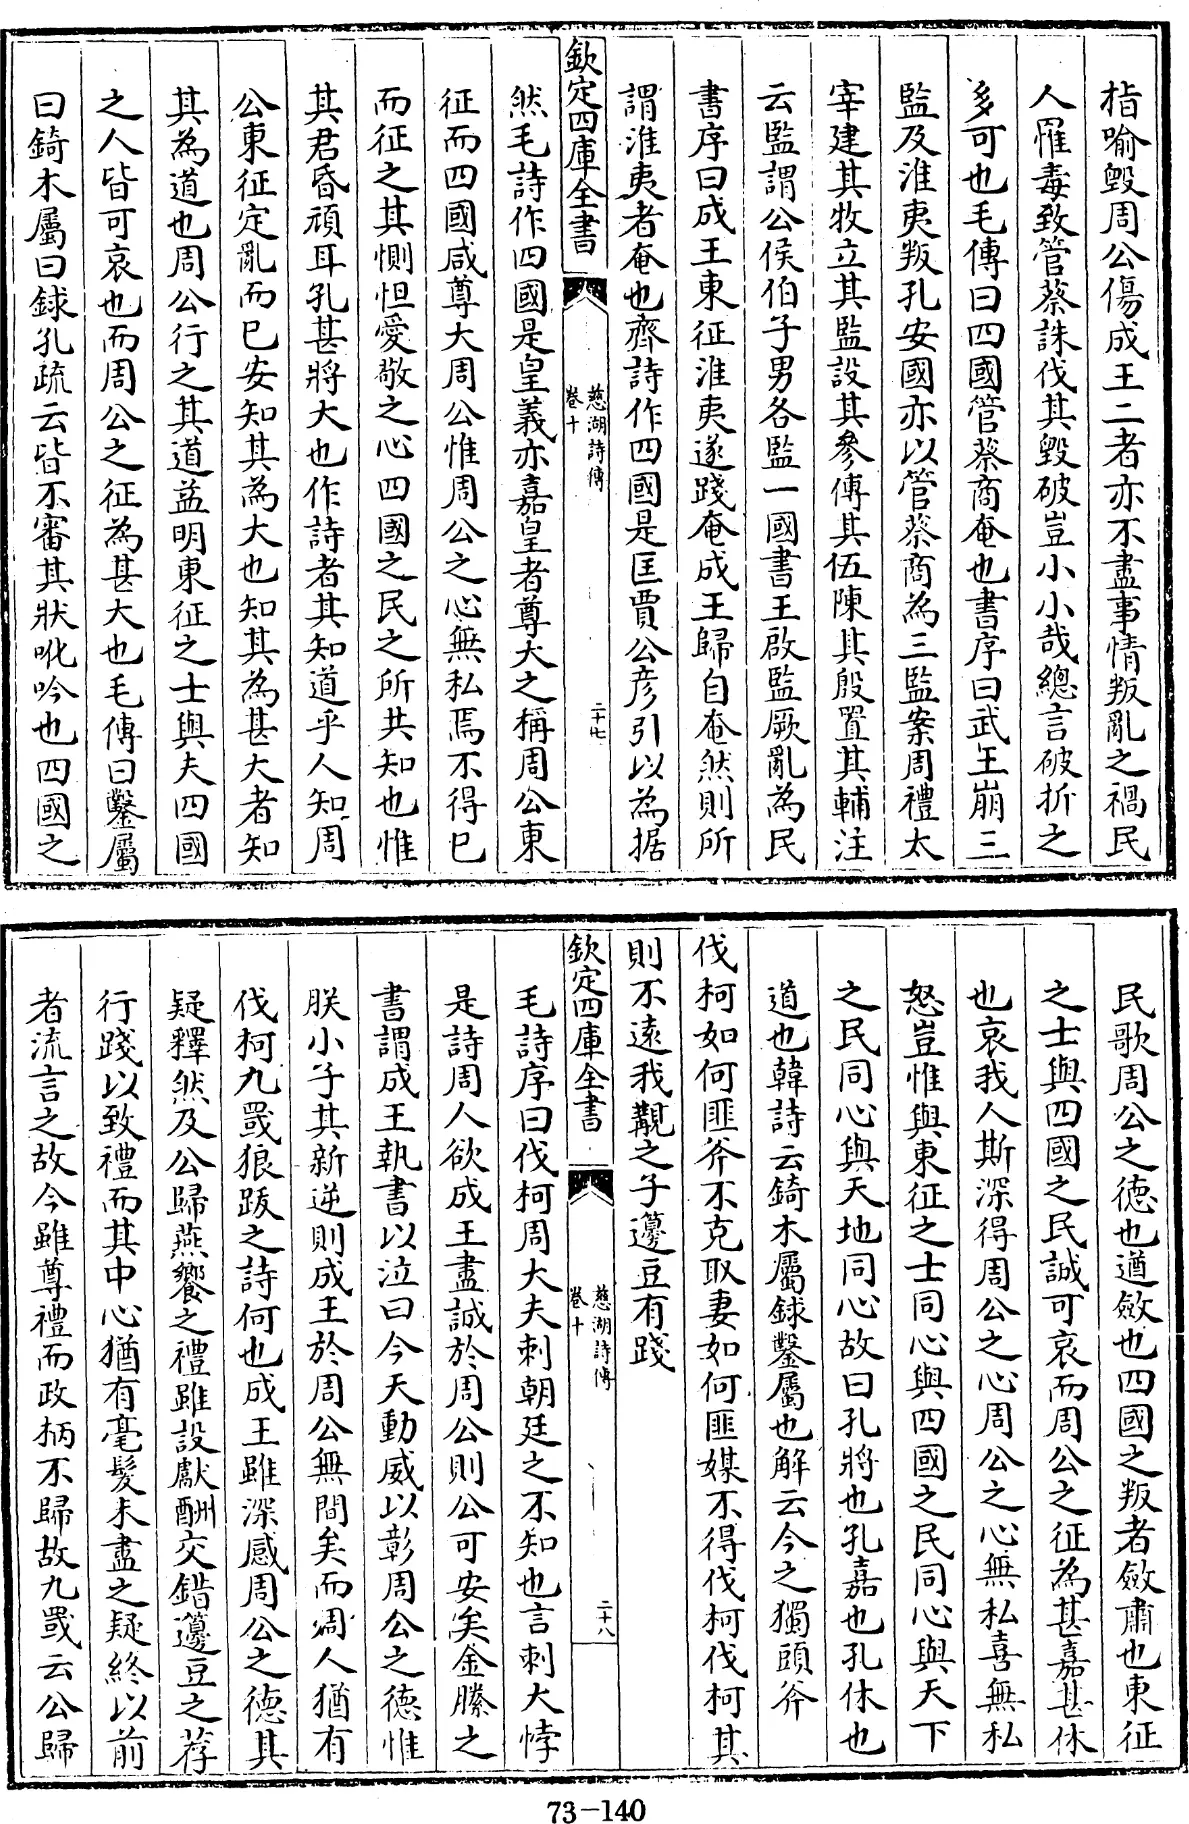 指喻毀周公傷成王二者亦不盡事情叛亂之禍民
人罹毒致管蔡誅伐其毀破豈小小哉總言破折之
多可也毛傳曰四國管蔡商奄也書序曰武王崩三
監及淮夷叛孔安國亦以管蔡商為三監案周禮太
宰建其牧立其監設其參傳其伍陳其殷置其輔注
云監謂公侯伯子男各監一國書王啟監厥亂為民
書序曰成王東征淮夷遂踐奄成王歸自奄然則所
謂淮夷者奄也齊詩作四國是匡賈公彦引以為据
欽定四庫全書
慈湖詩傳
卷十
二十七
然毛詩作四國是皇義亦嘉皇者尊大之稱周公東
征而四國咸尊大周公惟周公之心無私焉不得已
而征之其惻怛愛敬之心四國之民之所共知也惟
其君昏頑耳孔甚將大也作詩者其知道乎人知周
公東征定亂而已安知其為大也知其為甚大者知
其為道也周公行之其道益明東征之士與夫四國
之人皆可哀也而周公之征為甚大也毛傳曰鑿屬
曰錡木屬曰銶孔疏云皆不審其狀吪吟也四國之
民歌周公之德也遒斂也四國之叛者斂肅也東征
之士與四國之民誠可哀而周公之征為甚嘉甚休
也哀我人斯深得周公之心周公之心無私喜無私
怒豈惟與東征之士同心與四國之民同心與天下
之民同心與天地同心故曰孔將也孔嘉也孔休也
道也韓詩云錡木屬銶鑿屬也解云今之獨頭斧
伐柯如何匪斧不克取妻如何匪媒不得伐柯伐柯其
則不遠我覯之子籩豆有踐
欽定四庫全書
慈湖詩傳
卷十
二十八
毛詩序曰伐柯周大夫刺朝廷之不知也言刺大悖
是詩周人欲成王盡誠於周公則公可安矣金縢之
書謂成王執書以泣曰今天動威以彰周公之德惟
朕小子其新逆則成王於周公無間矣而周人猶有
伐柯九罭狼跋之詩何也成王雖深感周公之德其
疑釋然及公歸燕饗之禮雖設獻酬交錯籩豆之荐
行踐以致禮而其中心猶有毫髮未盡之疑終以前
者流言之故今雖尊禮而政柄不歸故九罭云公歸
73-140